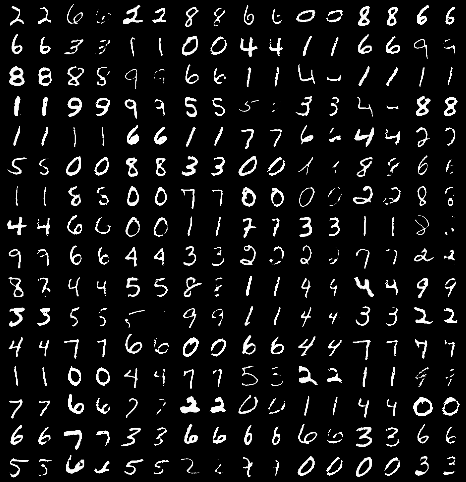 2 2 6 6 2 2 8 8 6 6 0 0 8 8 6 6
6 6 3 3 1 1 0 0 4 4 1 1 6 6 9 9
8 8 8 8 9 9 6 6 1 1 4 1 1 1 1
1 1 9 9 9 9 5 5 5 3 3 4 8 8
1 1 1 1 6 6 1 1 7 7 6 6 4 4 2 2
5 5 0 0 8 8 3 3 0 0 1 1 8 8 6 6
1 1 8 8 0 0 7 7 0 0 0 0 2 2 8 8
4 4 6 6 0 0 1 1 7 7 3 3 1 1 8
9 9 6 6 4 4 3 3 2 2 2 2 7 7 2 2
8 4 4 5 5 8 1 1 9 9 4 4 9 9
3 3 5 5 5 9 9 1 1 4 4 3 3 2 2
4 4 7 7 6 6 0 0 6 6 4 4 7 7 7 7
1 1 0 0 4 4 7 7 5 2 2 1 1 9 9
7 7 6 6 7 2 2 0 0 1 1 4 4 0 0
6 6 7 7 3 3 6 6 6 6 6 6 3 3 6 6
5 5 6 5 5 2 7 7 0 0 0 0 3 3